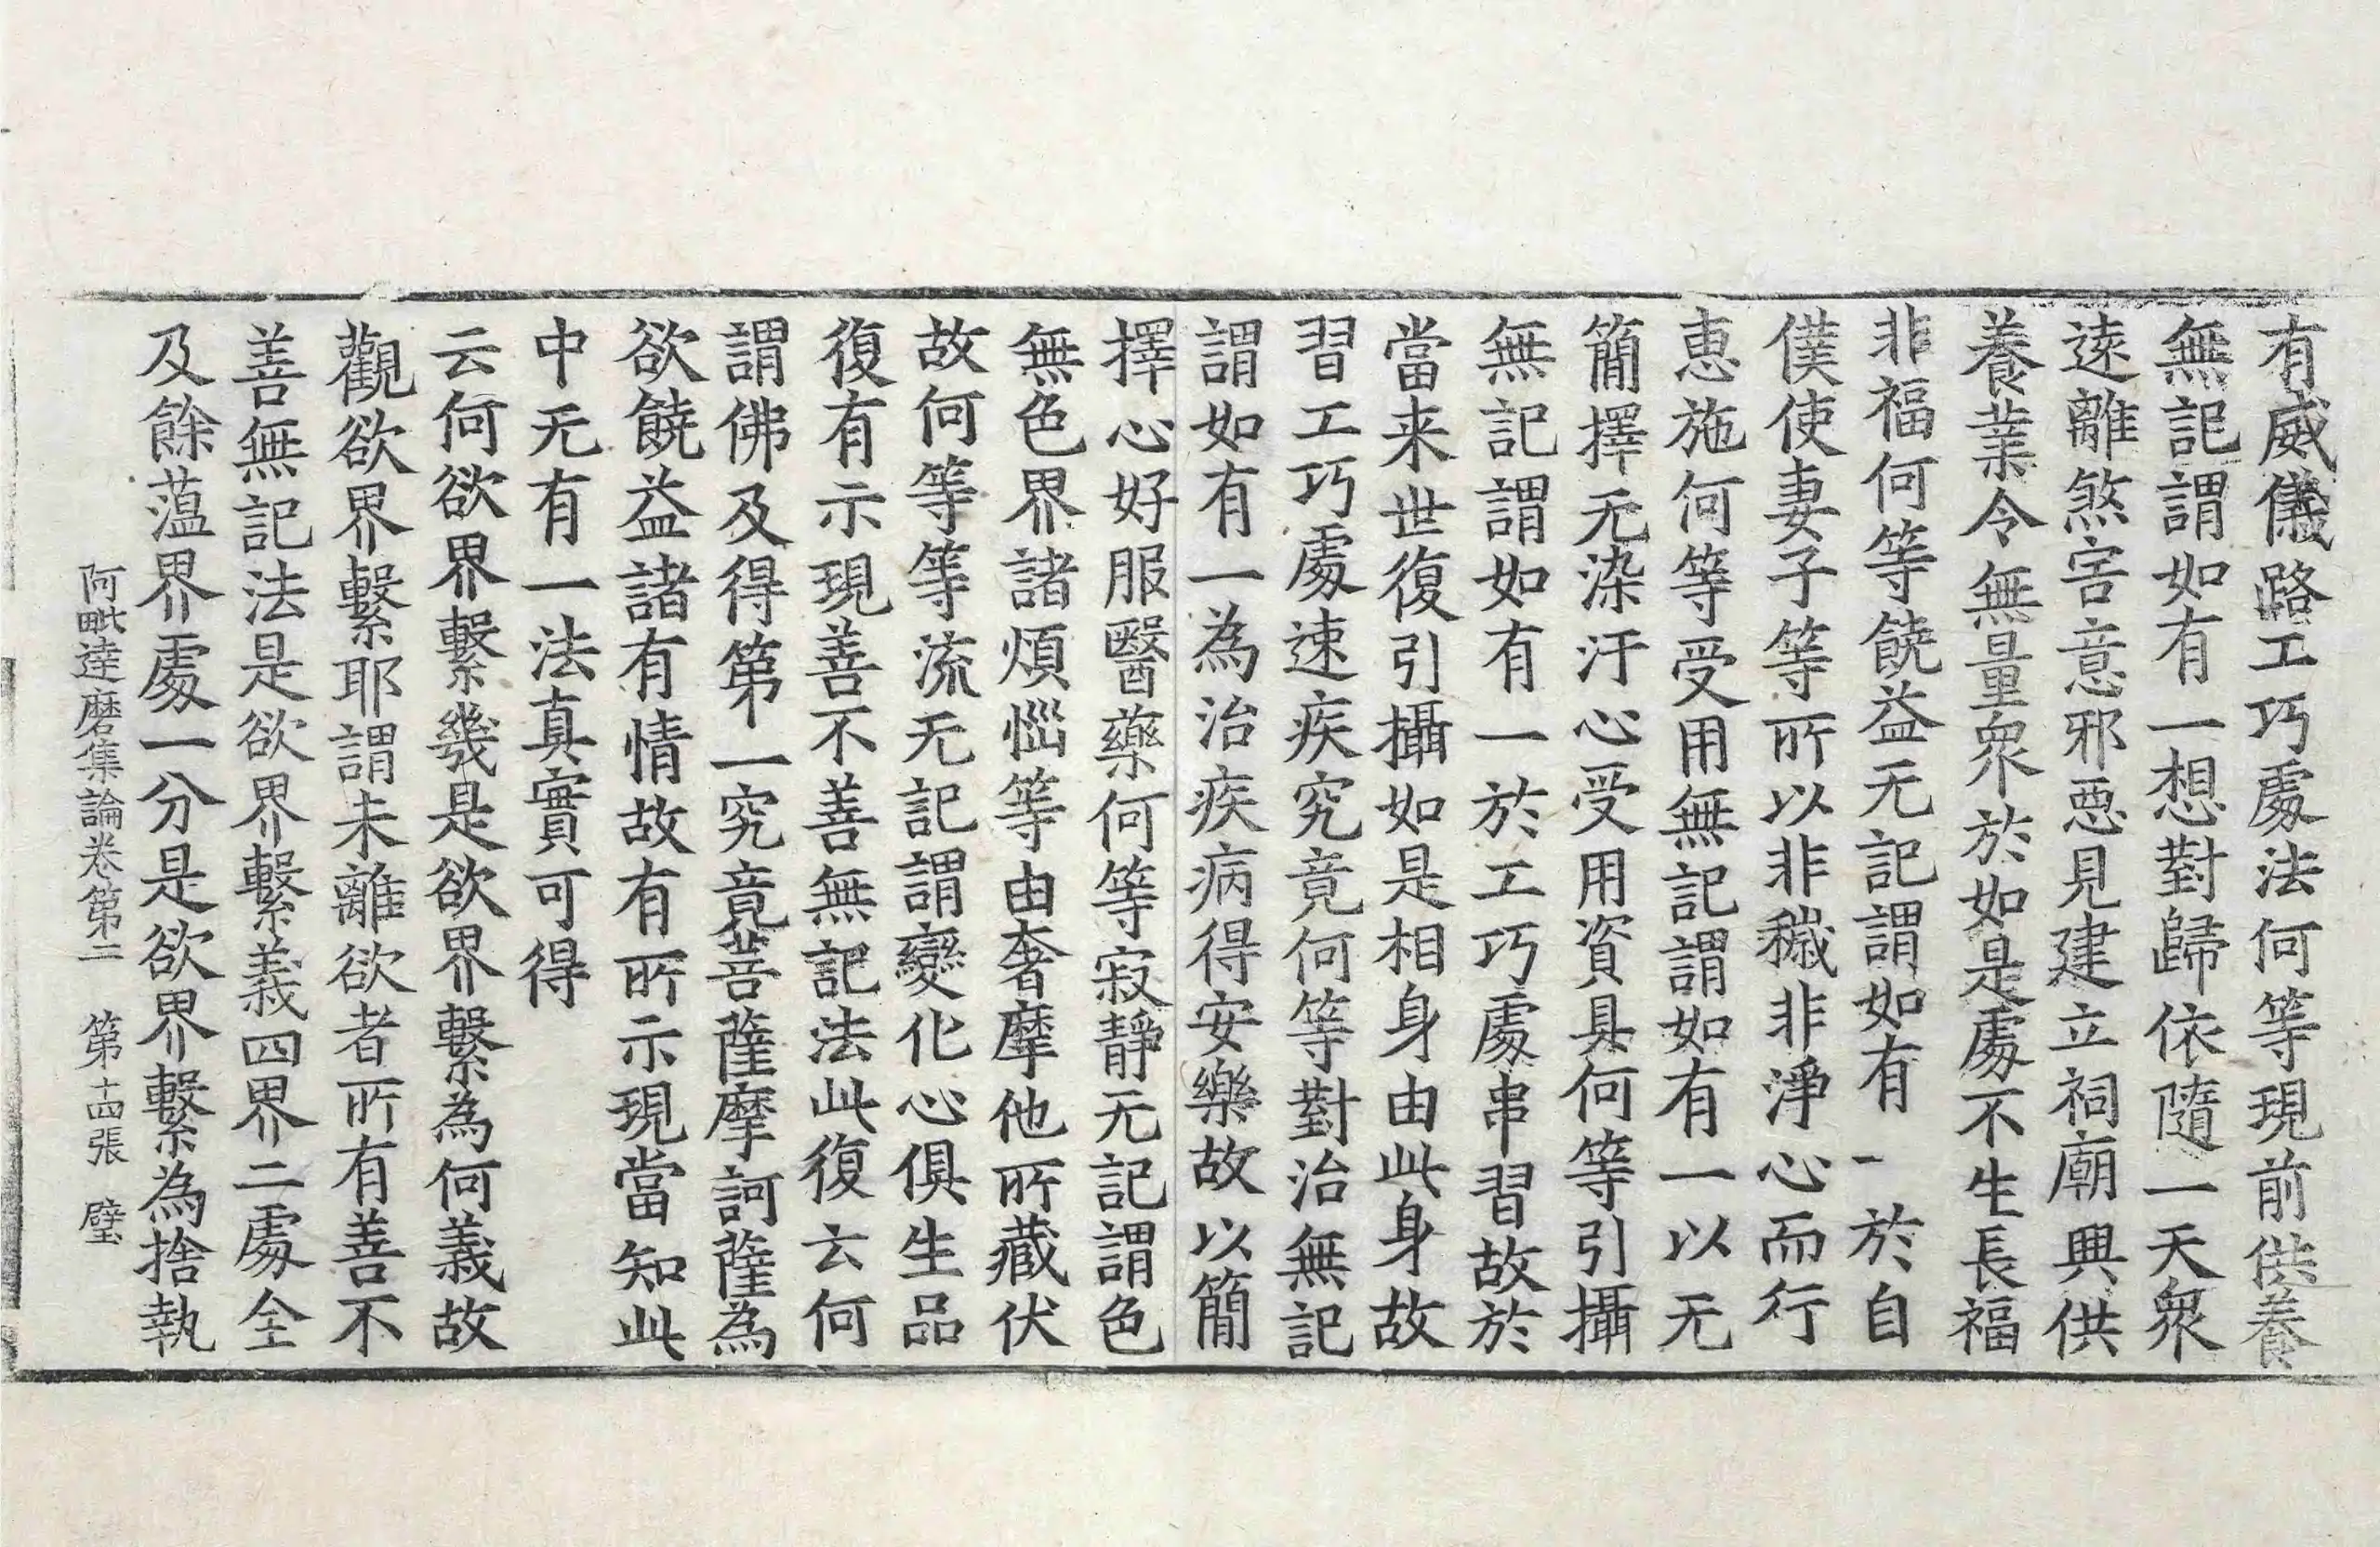 有威儀路工巧處法何等現前供養
無記謂如有一想對歸依隨一天衆
遠離煞害意邪惡見建立祠廟興供
養業令無量衆於如是處不生長福
非福何等饒益无記謂如有一於自
僕使妻子等所以非穢非淨心而行
惠施何等受用無記謂如有一以无
簡擇无染汙心受用資具何等引攝
無記謂如有一於工巧處串習故於
當来世復引攝如是相身由此身故
習工巧處速疾究竟何等對治無記
謂如有一為治疾病得安樂故以簡
擇心好服醫藥何等寂靜无記謂色
無色界諸煩惱等由奢摩他所藏伏
故何等等流无記謂變化心俱生品
復有示現善不善無記法此復云何
謂佛及得第一究竟菩薩摩訶薩為
欲饒益諸有情故有所示現當知此
中无有一法真實可得
云何欲界繫幾是欲界繫為何義故
觀欲界繫耶謂未離欲者所有善不
善無記法是欲界繫義四界二處全
及餘蕰界處一分是欲界繫為捨執
阿毗達磨集論卷第二 第十四張 璧